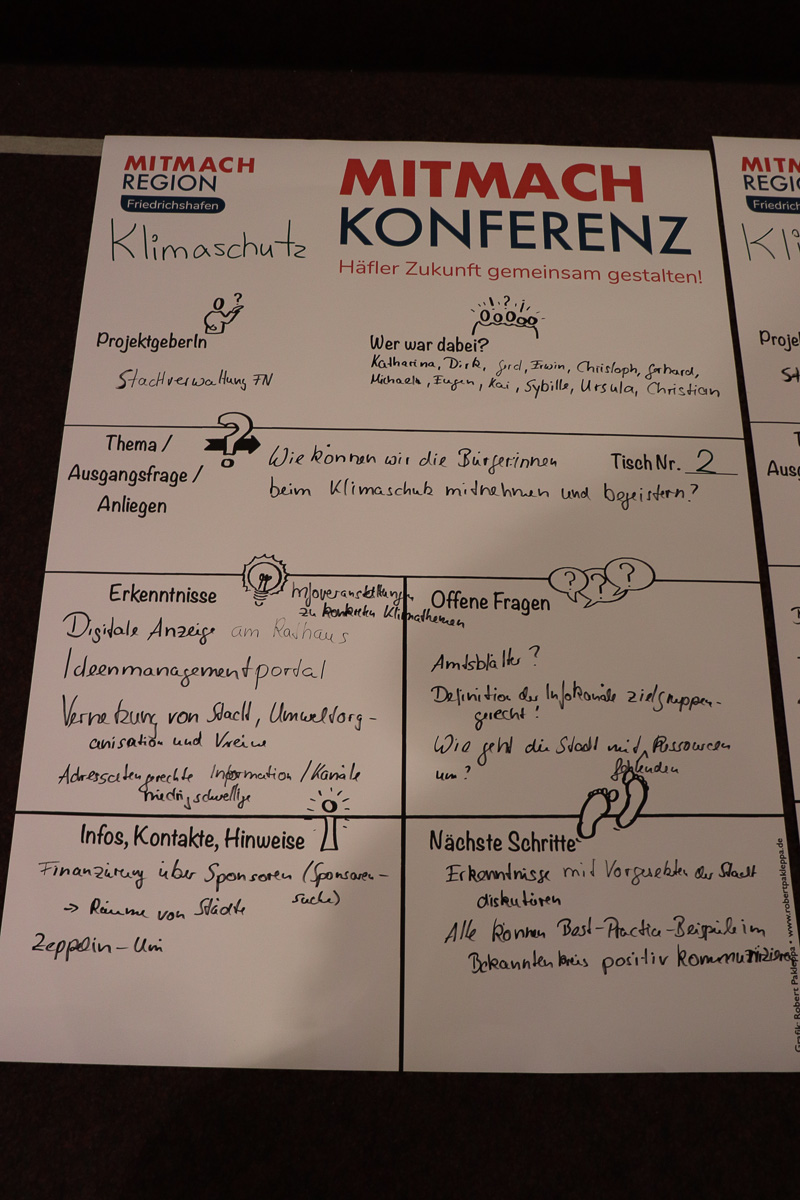 MITMACH
REGION
Friedrichshafen
Klimaschutz
MITMACH
KONFERENZ
Häfler Zukunft gemeinsam gestalten!
ProjektgeberIn
Stadtverwaltung FN
Wer war dabei?
Katharina, Dirk, Gerd, Erwin, Christoph, Gerhard,
Michaela, Eugen, Kai, Sybille, Ursula, Christian
Thema /
Ausgangsfrage /
Anliegen
Wie können wir die Bürger:innen
beim Klimaschutz mitnehmen und begeistern?
Tisch Nr. 2
Erkenntnisse
Infoveranstaltungen
zu konkreten Klimathemen
Digitale Anzeige am Rathaus
Ideenmanagementportal
Vernetzung von Stadt, Umweltorg-
anisation und Vereine
Adressatengerechte Information / Kanäle
niedrigschwellige
Offene Fragen
Amtsblätter?
Definition der Infokanäle zielgruppen-
gerecht!
Wie geht die Stadt mit Ressourcen
fehlenden
um?
Infos, Kontakte, Hinweise
Finanzierung über Sponsoren (Sponsoren-
suche)
→ Räume von Städte
Zeppelin-Uni
Nächste Schritte
Erkenntnisse mit Vorgesetzten der Stadt
diskutieren
Alle können Best-Practice-Beispiele im
Bekanntenkreis positiv kommunizieren
Grafik: Robert Pakleppa • www.robertpakleppa.de
MITM
REGIO
Friedrich
Kli
Proje
St
T
Ausg